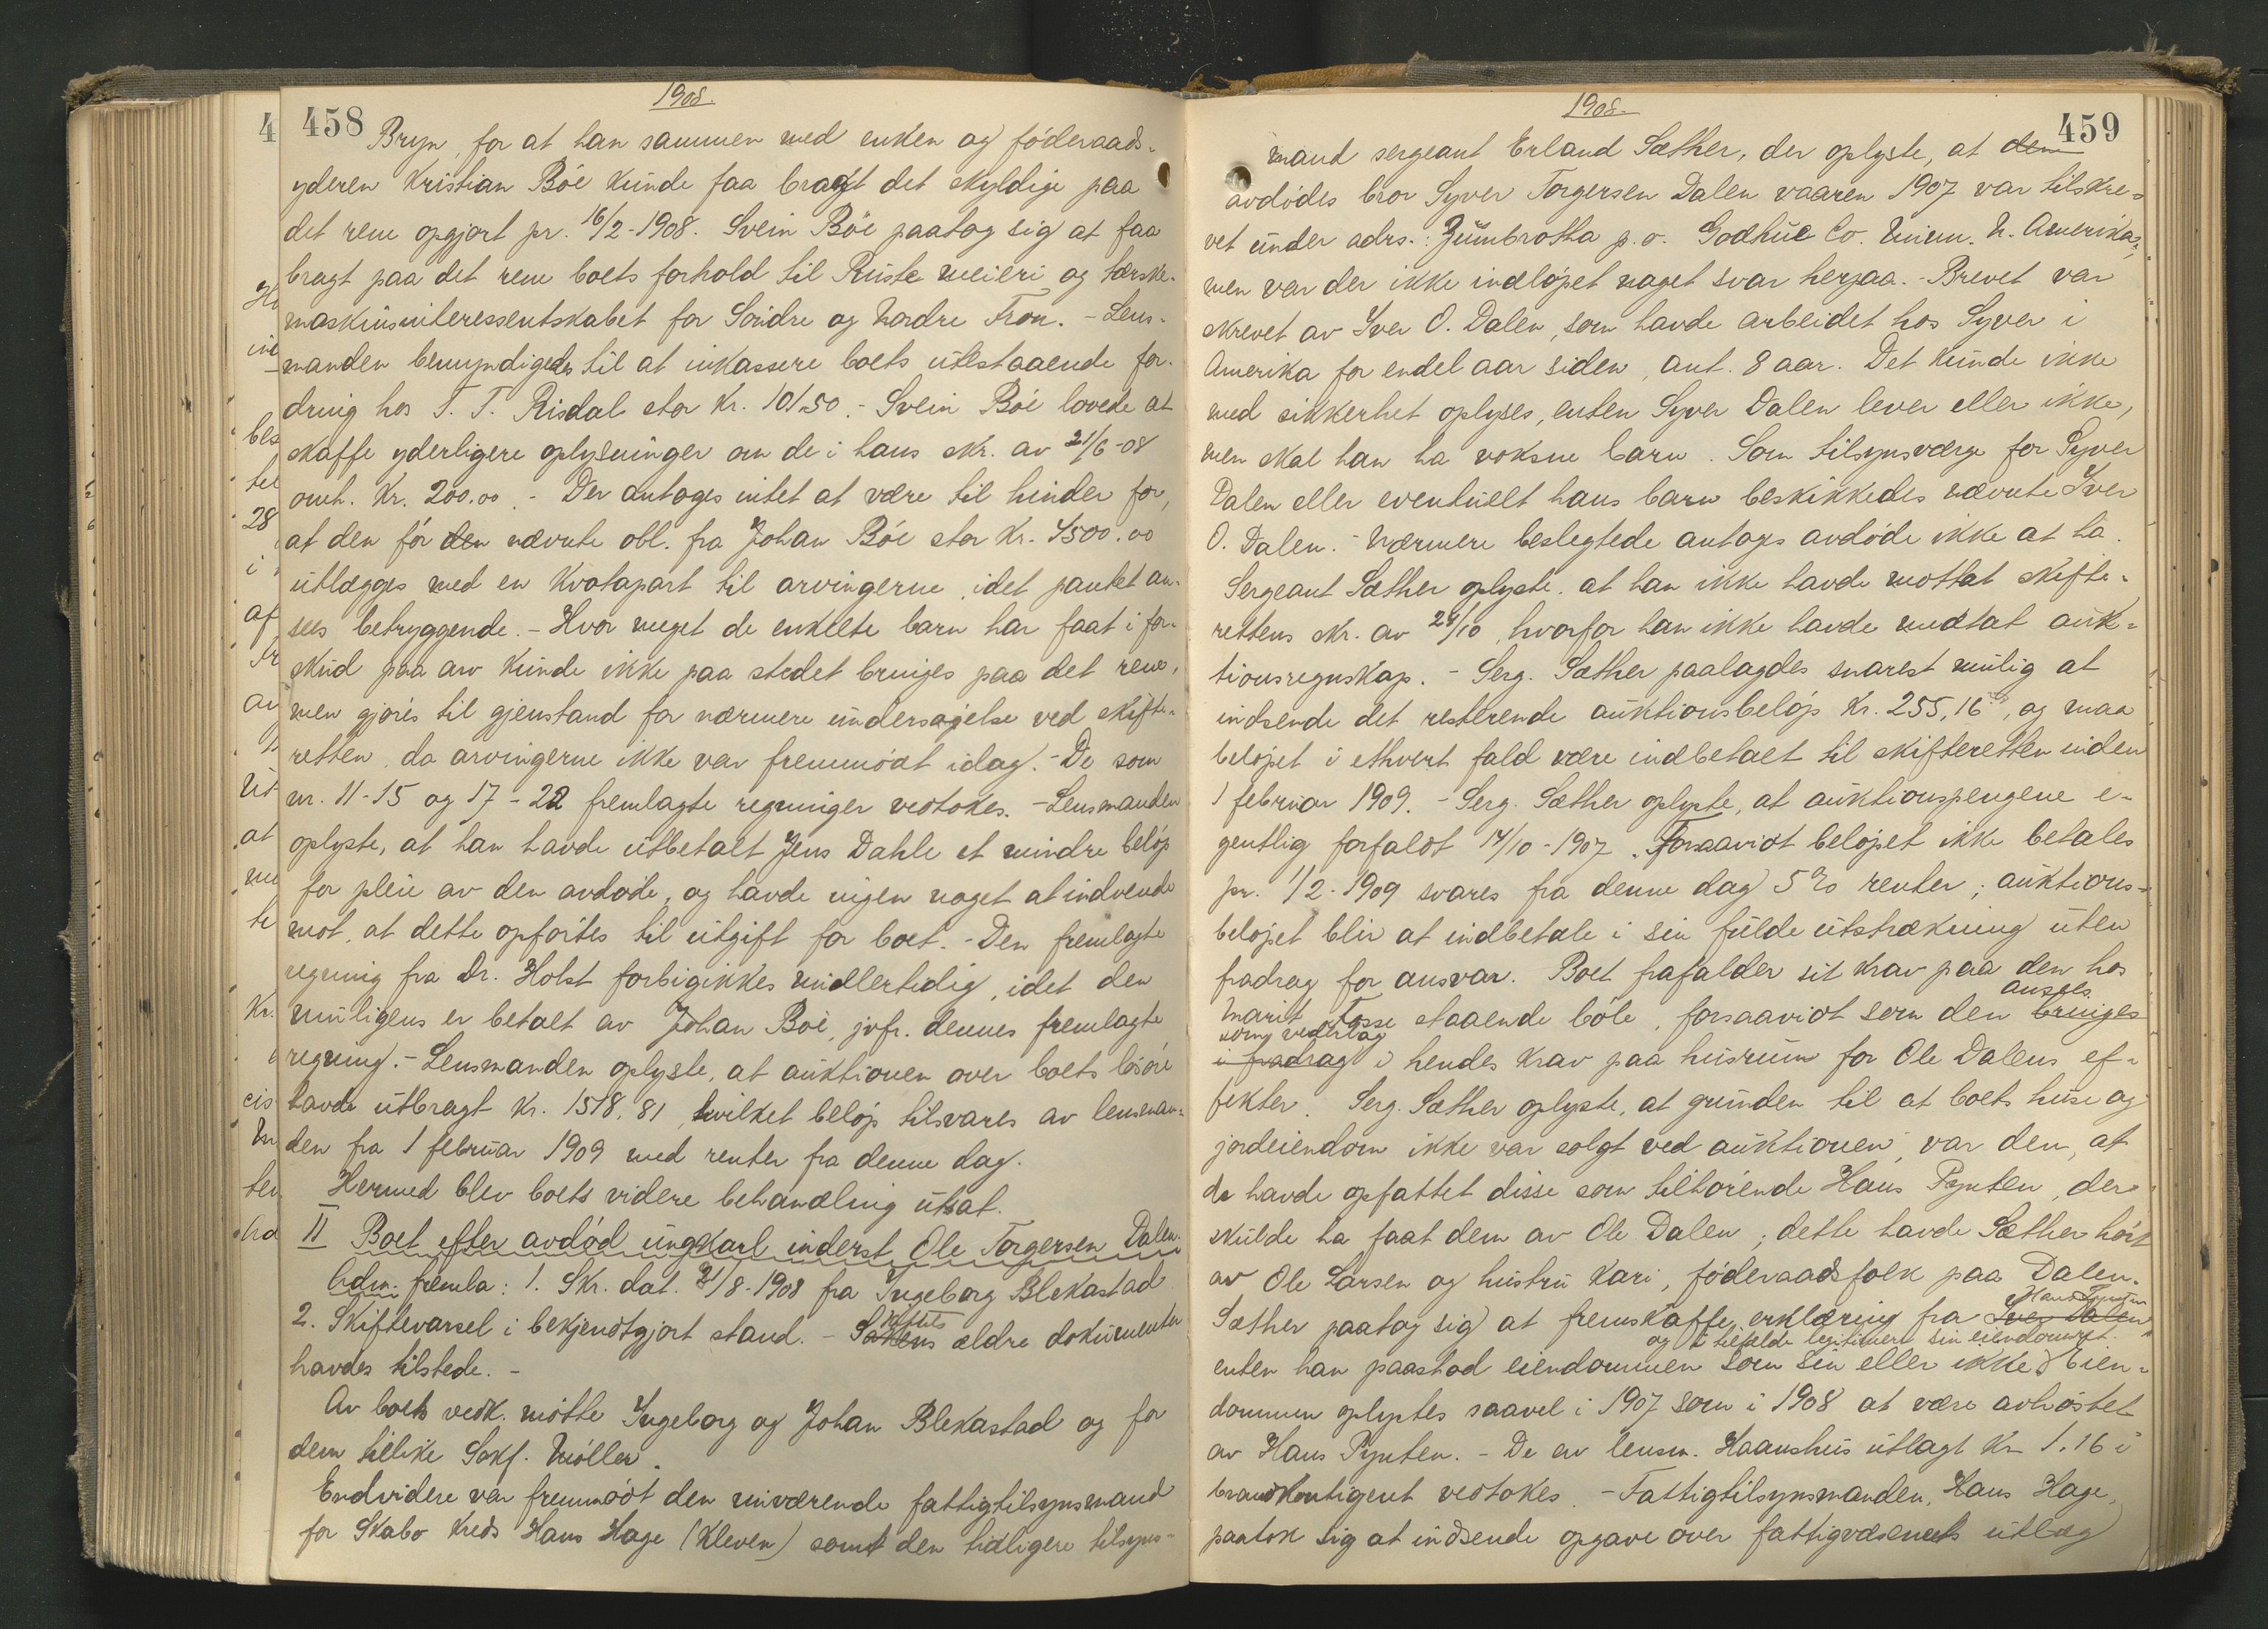 458
1908.
Bryn, for at han sammen med enken og föderaads-
yderen Kristian Böe kunde faa bragt det skyldige paa
det rene opgjort pr. 16/2-1908. Svein Böe paatog sig at faa
bragt paa det rene boets forhold til Ruste meieri og tærske-
maskinsinteressentskabet for Söndre og Nordre Fron. - Lens-
manden bemyndigedes til at inkassere boets utestaaende for-
dring hos T. T. Risdal stor Kr. 101.50. - Svein Böe lovede at
skaffe yderligere oplysninger om de i hans skr. av 21/6-08
omh. Kr. 200.00. - Der antages intet at være til hinder for,
at den för den nævnte obl. fra Johan Böe stor Kr. 4500.00
utlægges med en Kvotapart til arvingerne, idet pantet an-
sees betryggende. - Hvor meget de enkelte barn har faat i for-
skud paa arv kunde ikke paa stedet bringes paa det rene,
men gjöres til gjenstand for nærmere undersøgelse ved skifte-
retten, da arvingerne ikke var fremmödt idag. - De som
nr. 11-15 og 17-22 fremlagte regninger vedtokes. - Lensmanden
oplyste, at han havde utbetalt Jens Dahle et mindre belöp
for pleie av den avdöde, og havde ingen noget at indvende
mot, at dette opförtes til utgift for boet. - Den fremlagte
regning fra Dr. Holst forbigikkes midlertidig, idet den
muligens er betalt av Johan Böe, jvfr. dennes fremlagte
regning. - Lensmanden oplyste, at auktionen over boets lösöre
havde utbragt Kr. 1518.81, hvilket beløp tilsvares av lensman-
den fra 1 februar 1909 med renter fra denne dag.
Hermed blev boets videre behandling utsat.
II Boet efter avdöd ungkarl inderst Ole Torgersen Dalen.
Adm. fremla: 1. Skr. dat. 31/8-1908 fra Ingeborg Blekastad
2. Skiftevarsel i bekjendtgjort stand. - Boets ældre dokumenter
havdes tilstede. -
Av boets vedk. mötte Ingeborg og Johan Blekastad og for
dem tillike Sakf. Möller.
Endvidere var fremmödt den nuværende fattigtilsynsmand
for Skabo Kreds Hans Hage (Kleven) samt den tidligere tilsyns-
459
1908.
mand sergeant Erland Sæther, der oplyste, at den
avdödes bror Syver Torgersen Dalen vaaren 1907 var tilskre-
vet under adrs.: Zumbrotha p.o. Godhue Co. Minn. N. Amerika,
men var der ikke indløpet noget svar herpaa. - Brevet var
skrevet av Iver O. Dalen, som havde arbeidet hos Syver i
Amerika for endel aar siden, ant. 8 aar. Det kunde ikke
med sikkerhet oplyses, enten Syver Dalen lever eller ikke,
men skal han ha voksne barn. Som tilsynsværge for Syver
Dalen eller eventuelt hans barn beskikkedes nævnte Iver
O. Dalen. - Nærmere beslegtede antages avdöde ikke at ha.
Sergeant Sæther oplyste, at han ikke havde mottat skifte-
rettens skr. av 28/10, hvorfor han ikke havde medtat auk-
tionsregnskap. - Serg. Sæther paalagdes snarest mulig at
indsende det resterende auktionsbeløp Kr. 255,16, og maa
beløpet i ethvert fald være indbetalt til skifteretten inden
1 februar 1909. - Serg. Sæther oplyste, at auktionspengene e-
gentlig forfaldt 14/10-1907. Forsaavidt beløpet ikke betales
pr. 1/2-1909 svares fra denne dag 5% renter; auktions-
belöpet blir at indbetale i sin fulde utstrækning uten
fradrag for ansvar. Boet frafalder sit krav paa den hos
ansees
Marit Fosse staaende böle, forsaavidt som den bringes
som vederlag
i fradrag i hendes krav paa husrum for Ole Dalens ef-
fekter. Serg. Sæther oplyste, at grunden til at boets huse og
jordeiendom ikke var solgt ved auktionen, var den, at
de havde opfattet disse som tilhörende Hans Pynten, der
skulde ha faat dem av Ole Dalen; dette havde Sæther hört
av Ole Larsen og hustru Kari, föderaadsfolk paa Dalen.
Hans Pynten
Sæther paatog sig at fremskaffe erklæring fra Iver Dalen
og i tilfælde legitimere sin eiendomsret.
enten han paastod eiendommen som sin eller ikke Eien-
dommen oplystes saavel i 1907 som i 1908 at være avhöstet
av Hans Pynten. - De av lensm. Haanshus utlagt Kr 1.16 i
brandkontigent vedtokes. - Fattigtilsynsmanden, Hans Hage,
paatok sig at indsende opgave over fattigvæsenets utlæg